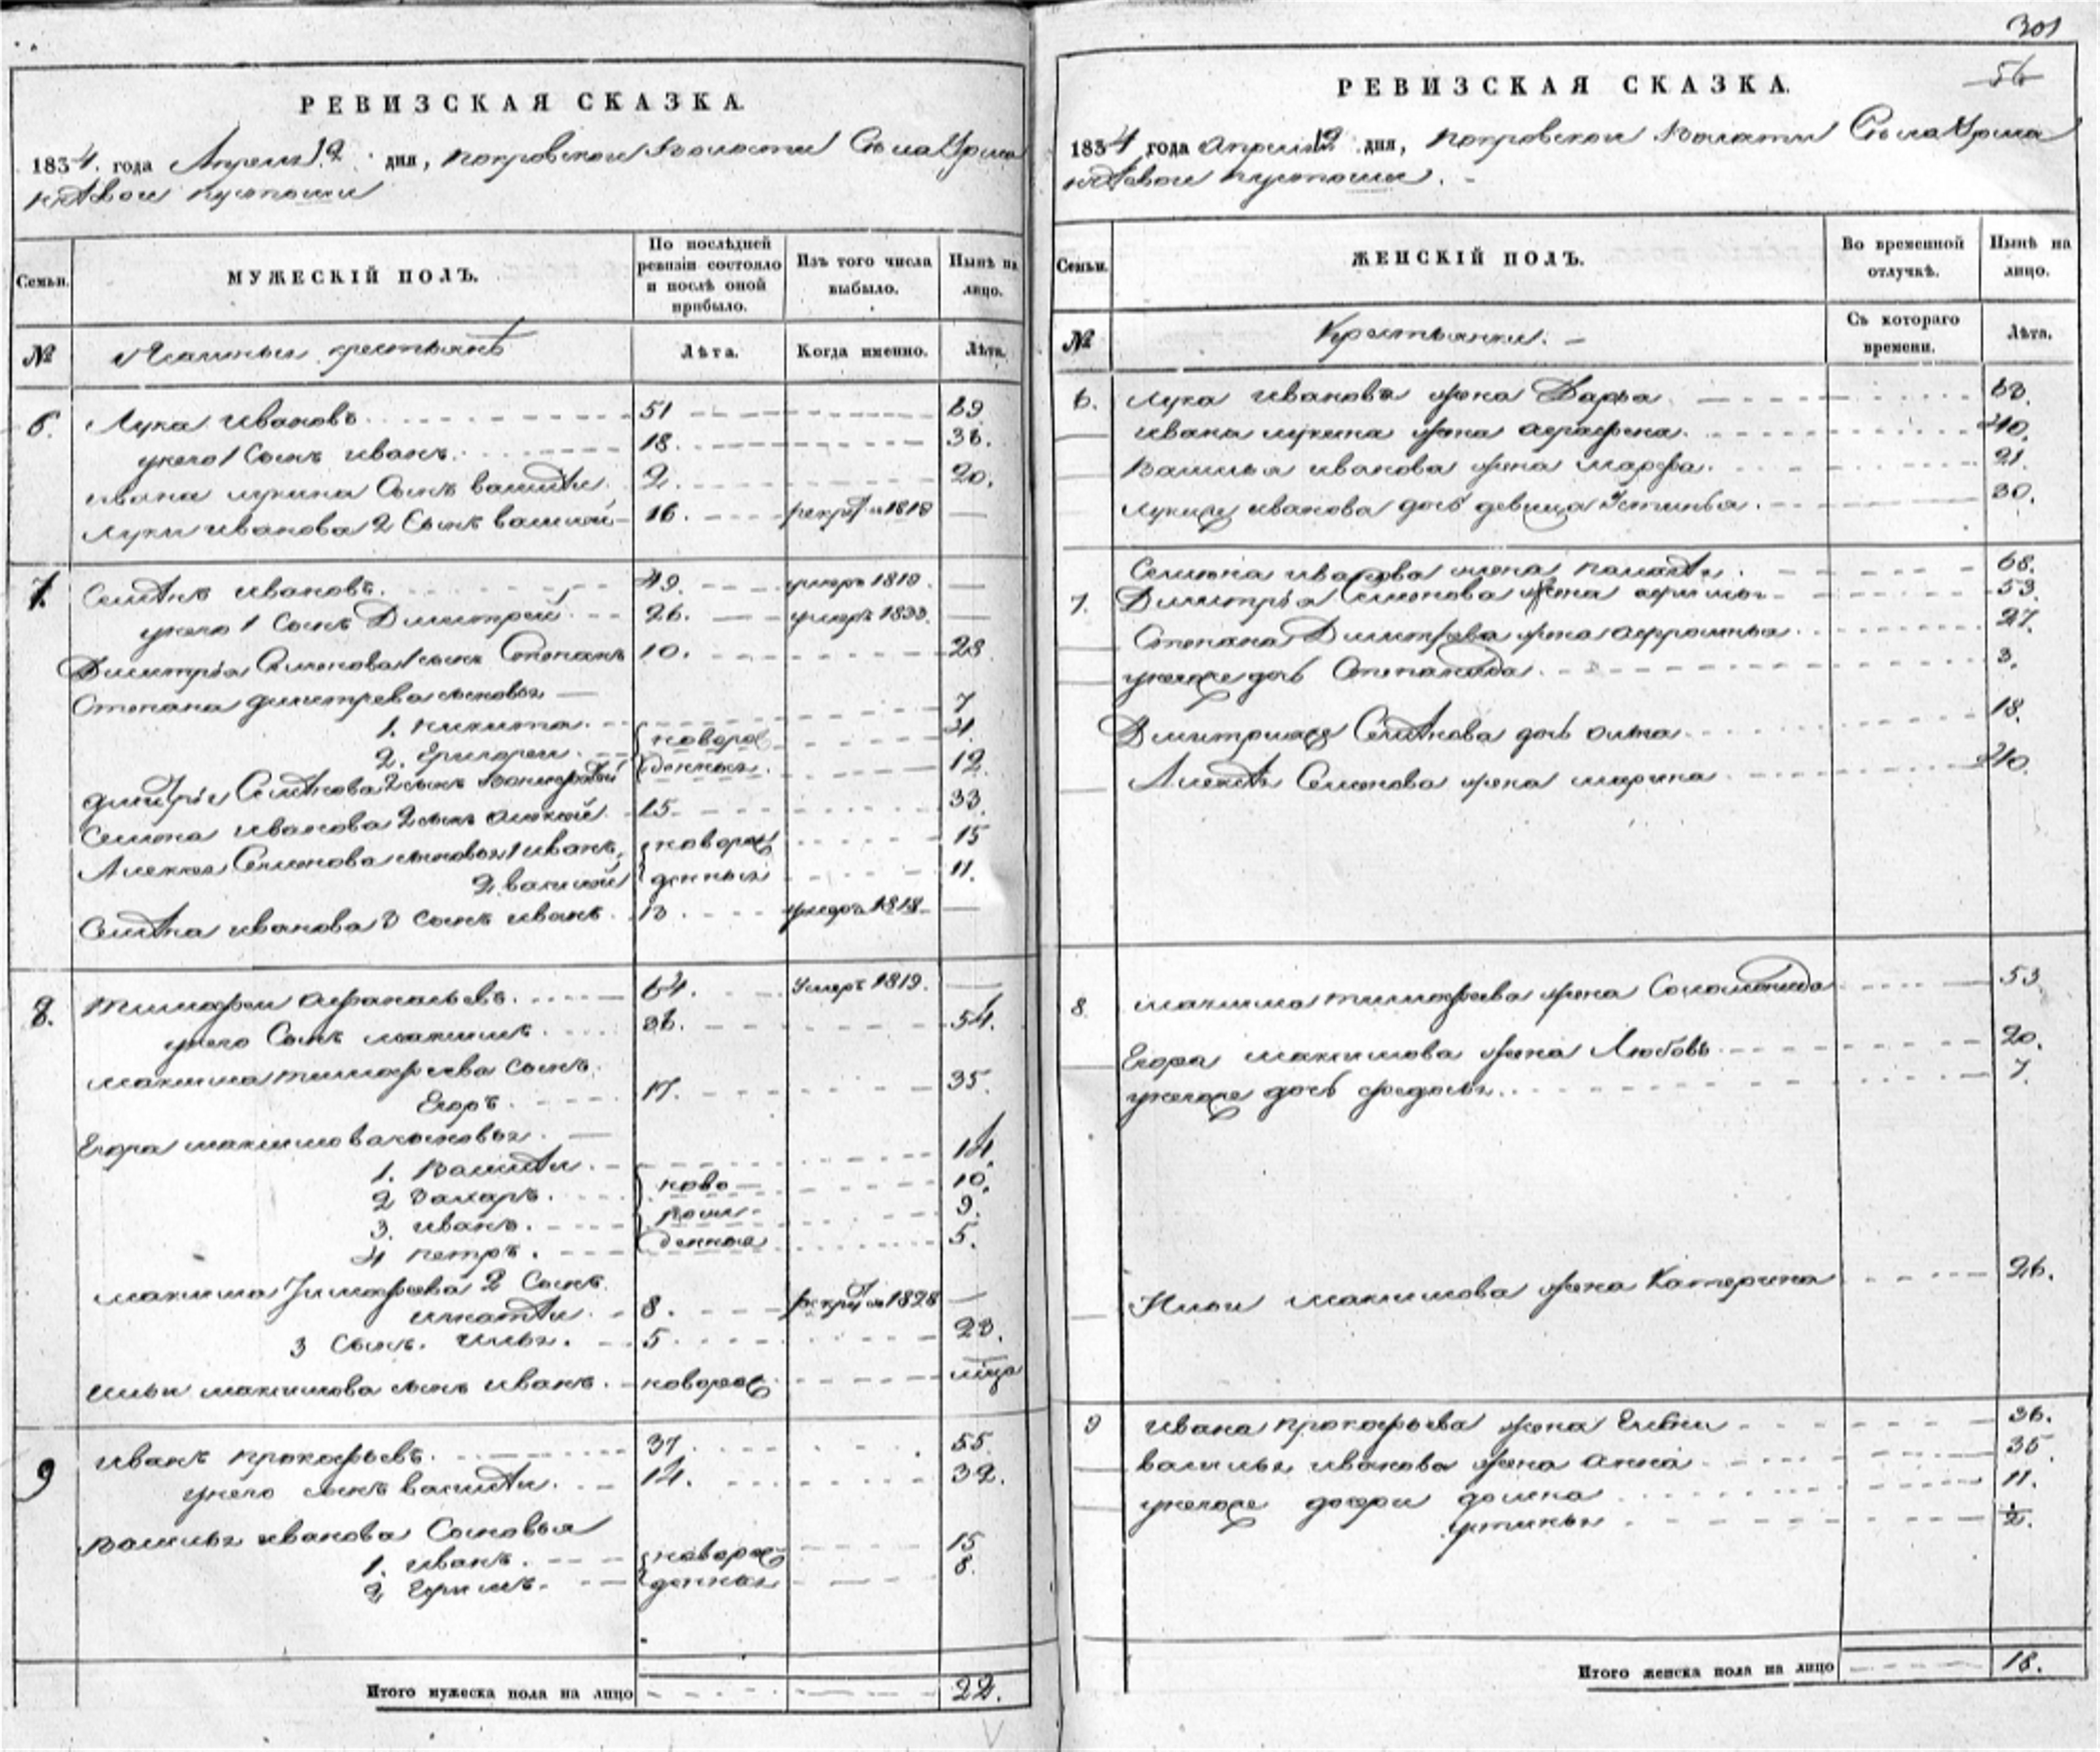 РЕВИЗСКАЯ СКАЗКА.
1834. года Апреля 12 дня, Покровской Волости Села
пустоши
Семьи.
МУЖЕСКІЙ ПОЛЪ.
По послѣдней ревизіи состояло и послѣ оной прибыло.
Изъ того числа выбыло.
Нынѣ на лицо.
№
крестьянъ
Лѣта.
Когда именно.
Лѣта.
6. Лука Ивановъ 51 69
у него 1 сынъ Иванъ 18. 36.
Ивана Лукина сынъ Василѣи 2. 20.
Луки Иванова 2 сынъ Василѣи 16. 1818
7. Семѣнъ Ивановъ 49. умеръ 1819.
у него 1 сынъ Димитрей 26. умеръ 1833.
Димитрія Семенова 1 сынъ Степанъ 10. 28
Степана Димитрева сыновья
1. Никита 7
2. Григореи новорож 4.
Димитрія Семѣнова 2 сынъ денныя 12.
Семена Иванова 2 сынъ Алексѣй 15. 33
Алексея Семенова сыновья 1 Иванъ новорож 15
2 Василей денныя 11.
Семѣна Иванова 3 сынъ Иванъ 13. умеръ 1818
8. Тимофеи Афанасьевъ 64. умеръ 1819.
у него сынъ Максимъ 36. 54.
Максима Тимофеева сынъ
Егоръ 17. 35.
Егора Максимова сыновья
1. Василѣи 14.
2 Захаръ ново 10.
3. Иванъ рож 9.
4 Петръ денные 5.
Максима Тимофеева 2 сынъ
Игнатѣи 8. 1828
3 сынъ Илья 5. 23.
Ильи Максимова сынъ Иванъ новорож
9 Иванъ Прокофьевъ 37. 55.
у него сынъ Василѣи 14. 32.
Василья Иванова сыновья
1. Иванъ новорож 15
2 Ефимъ денныя 8.
Итого мужеска пола на лицо 22.
301
56
РЕВИЗСКАЯ СКАЗКА.
1834 года Апреля 12 дня, Покровской Волости Села
пустоши.
Семьи.
ЖЕНСКІЙ ПОЛЪ.
Во временной отлучкѣ.
Нынѣ на лицо.
№
Крестьянки.
Съ котораго времени.
Лѣта.
6. Лука Иванова жена Дарья 63.
Ивана Лукина жена Аграфена 40.
Василья Иванова жена Марфа 21.
Луки же Иванова дочь девица Устинья 30.
Семена Иванова жена 68.
7. Димитрія Семенова жена 53.
Степана Димитрева жена Афросинья 27.
у него же дочь Степанида 3.
Димитрия же Семѣнова дочь 18.
Алексѣя Семенова жена Марина 40.
8. Максима Тимофеева жена Соломонида 53
Егора Максимова жена Любовь 20.
у него же дочь Федосья 7.
Ильи Максимова жена Катерина 26.
9 Ивана Прокофьева жена 36.
Василья Иванова жена Анна 35
у него же дочери Домна 11.
Устинья ½.
Итого женска пола на лицо 18.